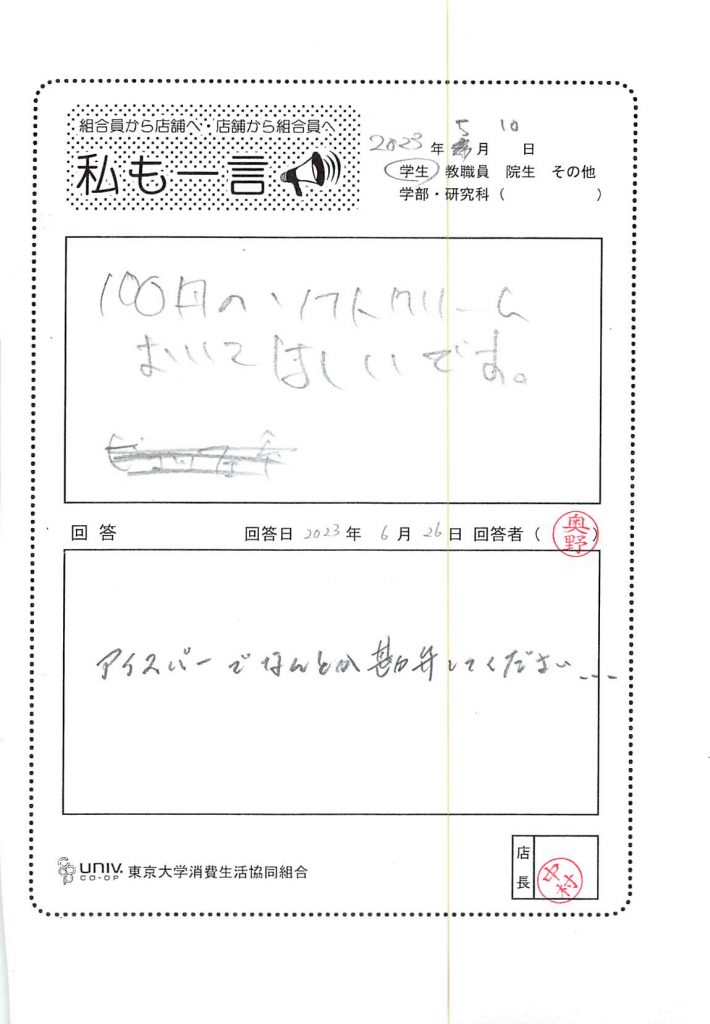 組合員から店舗へ・店舗から組合員へ
私も一言
2023年 5月 10日
学生 教職員 院生 その他
学部・研究科（　　　　　）
100円のソフトクリーム
おいてほしいです。
回答 回答日 2023年 6月 26日 回答者（奥野）
アイスバーでなんとか勘弁してください...
UNIV. CO-OP 東京大学消費生活協同組合
店長 中村